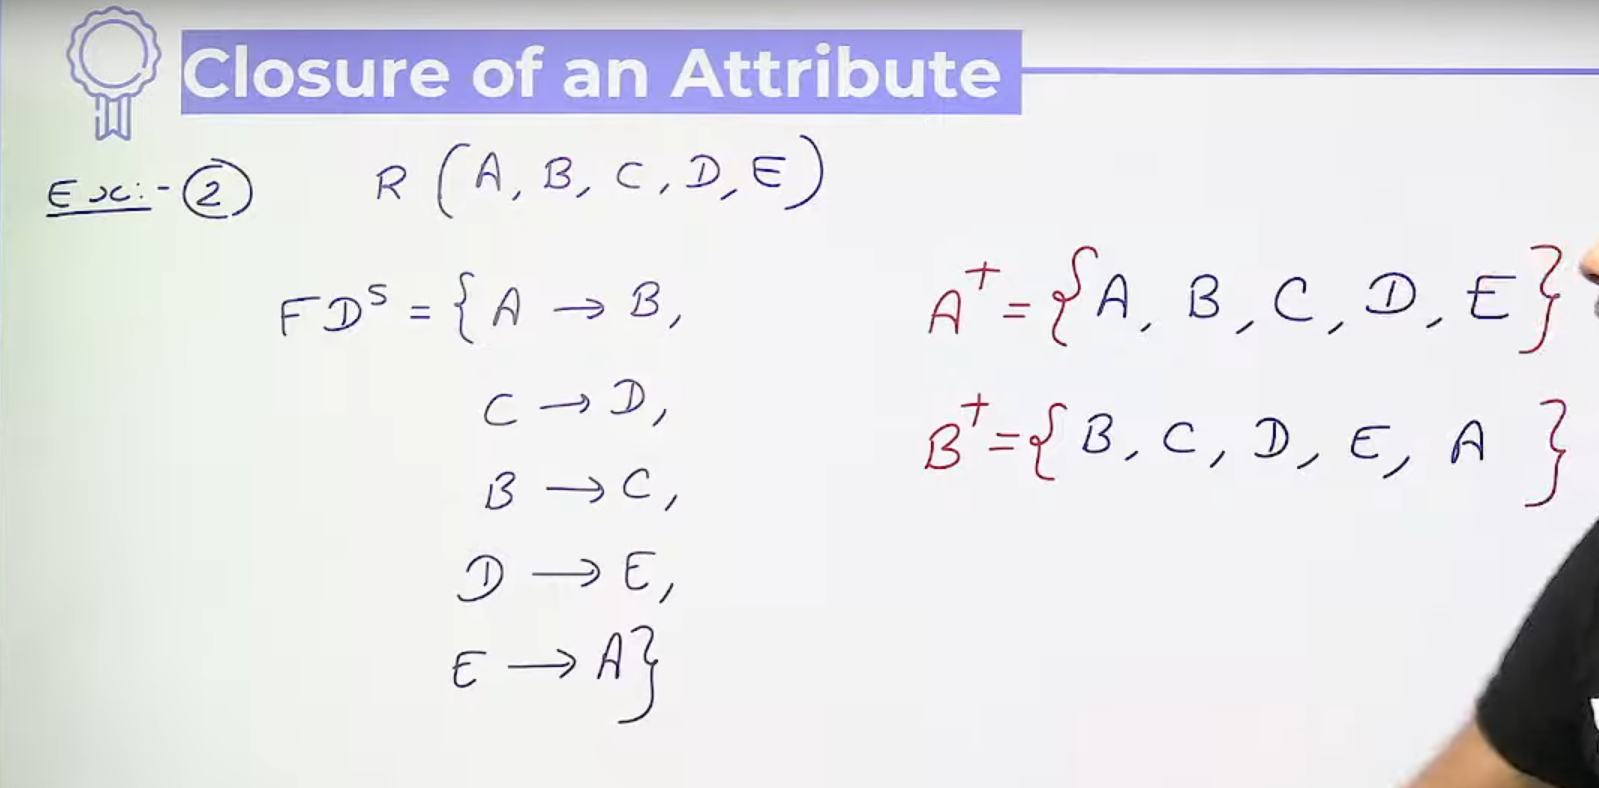 Closure of an Attribute
Ex:- 2 R (A, B, C, D, E)
FDs = {A → B,
C → D,
B → C,
D → E,
E → A}
A+ = {A, B, C, D, E}
B+ = {B, C, D, E, A }